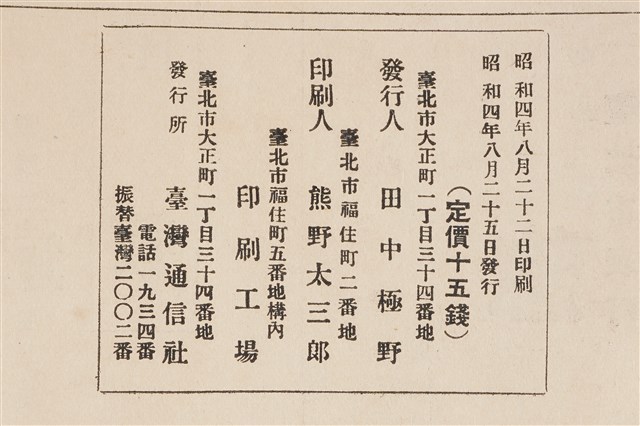 昭和四年八月二十二日印刷
昭和四年八月二十五日發行
(定價十五錢)
臺北市大正町一丁目三十四番地
發行人 田中極野
臺北市福住町二番地
印刷人 熊野太三郎
臺北市福住町五番地構內
印刷工場
臺北市大正町一丁目三十四番地
發行所 臺灣通信社
電話一九三四番
振替臺灣二〇〇二番